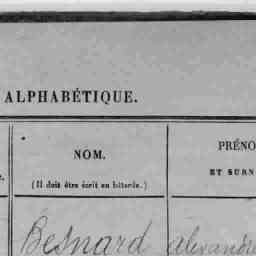 ALPHABÉTIQUE.
NOM.
(Il doit être écrit en bâtarde.)
PRÉNO
ET SURN
Besnard Alexandre